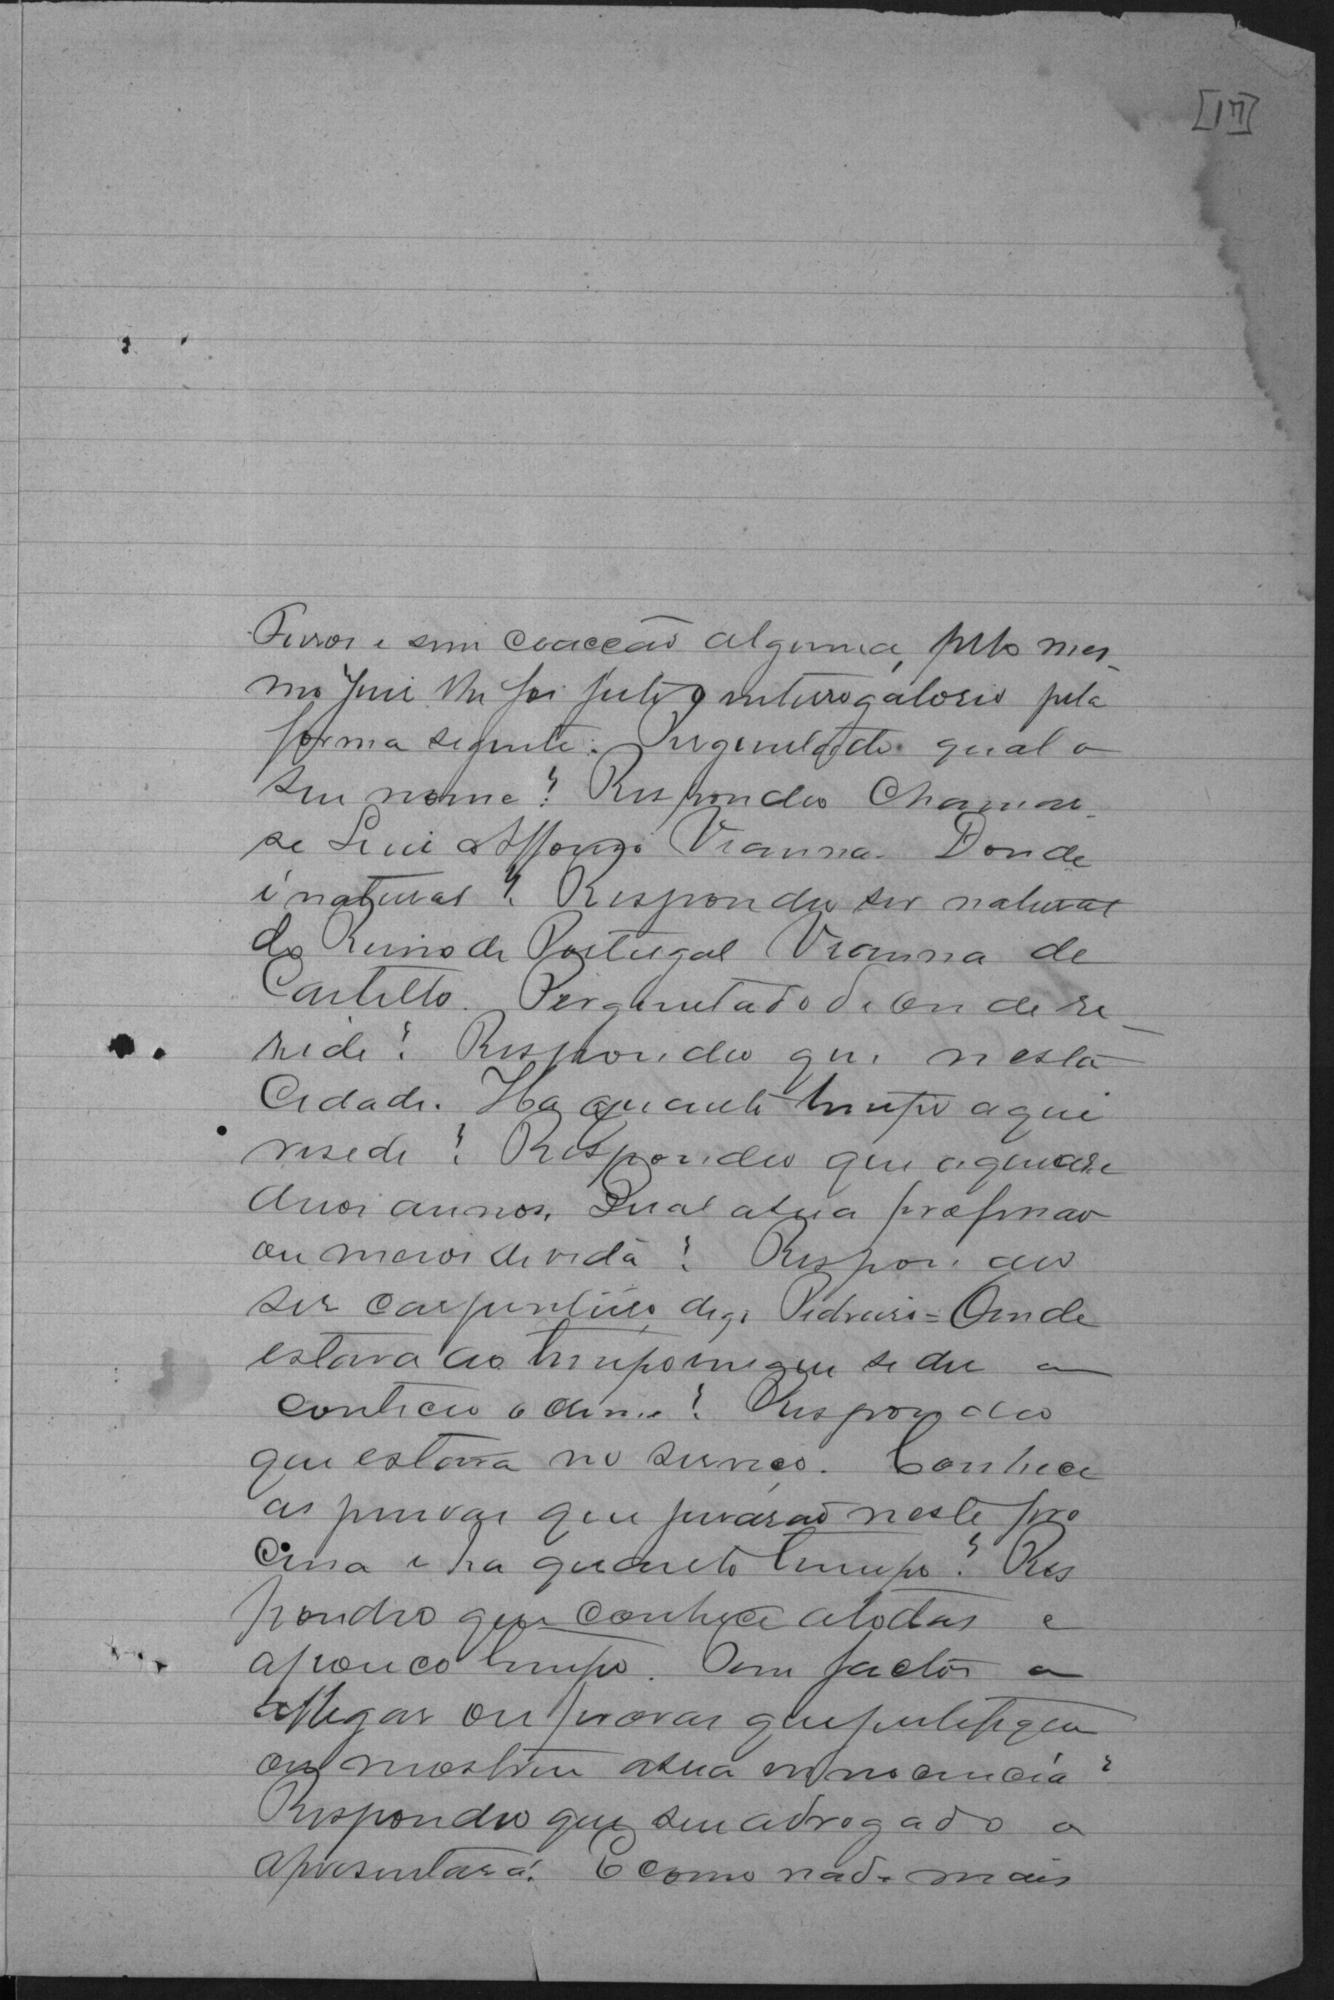 [17]
Ferros e sem coacção alguma, pelo mes-
mo Juiz lhe foi feito o interrogatorio pela
forma seguinte: Perguntado qual o
seu nome? Respondeo Chamar-
se Luiz Affonço Vianna. Donde
é natural? Respondeu ser natural
do Reino de Portugal Vianna de
Castello. Perguntado de onde re-
zide? Respondeo que nesta
Cidade. Ha quanto tempo aqui
reside? Respondeo que a quaze
douz annos. Qual a sua profissão
ou meios de vida? Respondeo
ser carpinteiro, digo Pedreiro = Onde
estava ao tempo em que se deu
conteceo o crime? Respondeo
que estava no serviço. Conhece
as pessoas que jurárão neste pro
cesso e ha quanto tempo? Res
pondeo que conhece a todas e
a pouco tempo. Tem factos a
allegar ou provas que justifiquem
ou mostrem a sua innocencia?
Respondeo que seu advogado a
apresentará. E como nada mais